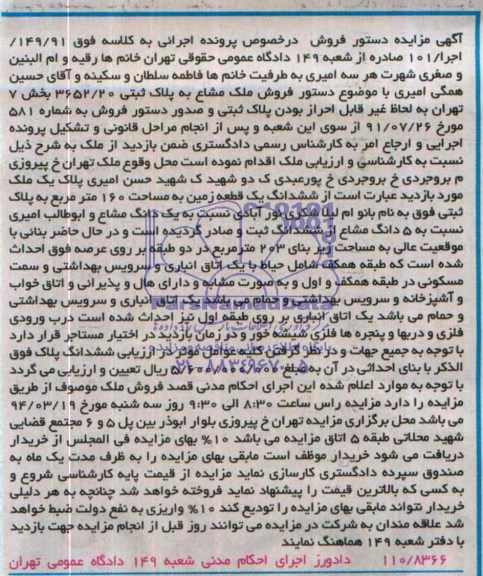 آگهی مزایده دستور فروش درخصوص پرونده اجرائی به کلاسه فوق ۱۴۹/۹۱/
اجرا/۱۰۱ صادره از شعبه ۱۴۹ دادگاه عمومی حقوقی تهران خانم ها رقیه و ام البنین
و صغری شهرت هر سه امیری به طرفیت خانم ها فاطمه سلطان و سکینه و آقای حسین
همگی امیری با موضوع دستور فروش ملک مشاع به پلاک ثبتی ۳۶۵۲/۲۰ بخش ۷
تهران به لحاظ غیر قابل احراز بودن پلاک ثبتی و صدور دستور فروش به شماره ۵۸۱
مورخ ۹۱/۰۷/۲۶ از سوی این شعبه و پس از انجام مراحل قانونی و تشکیل پرونده
اجرایی و ارجاع امر به کارشناس رسمی دادگستری ضمن بازدید از ملک به شرح ذیل
نسبت به کارشناسی و ارزیابی ملک اقدام نموده است محل وقوع ملک تهران خ پیروزی
م بروجردی خ بروجردی خ پورعبدی ک دو شهید ک شهید حسن امیری پلاک یک ملک
مورد بازدید عبارت است از ششدانگ یک قطعه زمین به مساحت ۱۶۰ متر مربع به پلاک
ثبتی فوق به نام بانو ام لیلا شکری نور آبادی نسبت به یک دانگ مشاع و ابوطالب امیری
نسبت به ۵ دانگ مشاع از ششدانگ ثبت و صادر گردیده است و در حال حاضر بنائی با
موقعیت عالی به مساحت زیر بنای ۲۰۳ مترمربع در دو طبقه بر روی عرصه فوق احداث
شده است که طبقه همکف شامل حیاط با یک اتاق انباری و سرویس بهداشتی و سمت
مسکونی در طبقه همکف و اول و به صورت مشابه و دارای هال و پذیرائی و اتاق خواب
و آشپزخانه و سرویس بهداشتی و حمام می باشد یک اتاق انباری و سرویس بهداشتی
و حمام می باشد یک اتاق انباری بر روی طبقه اول نیز احداث شده است درب ورودی
فلزی و دربها و پنجره ها فلزی شیشه خور و در زمان بازدید در اختیار مستاجر قرار دارد
با توجه به جمیع جهات و در نظر گرفتن کلیه عوامل موثر در ارزیابی ششدانگ پلاک فوق
الذکر با بنای احداثی در آن به مبلغ ریال تعیین و ارزیابی می گردد
با توجه به موارد اعلام شده این اجرای احکام مدنی قصد فروش ملک موصوف از طریق
مزایده را دارد مزایده راس ساعت ۸:۳۰ الی ۹:۳۰ روز سه شنبه مورخ ۹۴/۰۳/۱۹
می باشد محل برگزاری مزایده تهران خ پیروزی بلوار ابوذر بین پل ۵ و ۶ مجتمع قضایی
شهید محلاتی طبقه ۵ اتاق مزایده می باشد ۱۰% بهای مزایده فی المجلس از خریدار
دریافت می شود خریدار موظف است مابقی بهای مزایده را به ظرف مدت یک ماه به
صندوق سپرده دادگستری کارسازی نماید مزایده از قیمت پایه کارشناسی شروع و
به کسی که بالاترین قیمت را پیشنهاد نماید فروخته خواهد شد چنانچه به هر دلیلی
خریدار نتواند مابقی بهای مزایده را تودیع کند ۱۰% واریزی به نفع دولت ضبط خواهد
شد علاقه مندان به شرکت در مزایده می توانند روز قبل از انجام مزایده جهت بازدید
با دفتر شعبه ۱۴۹ هماهنگ نمایند
۱۱۰/۸۳۶۶ دادورز اجرای احکام مدنی شعبه ۱۴۹ دادگاه عمومی تهران